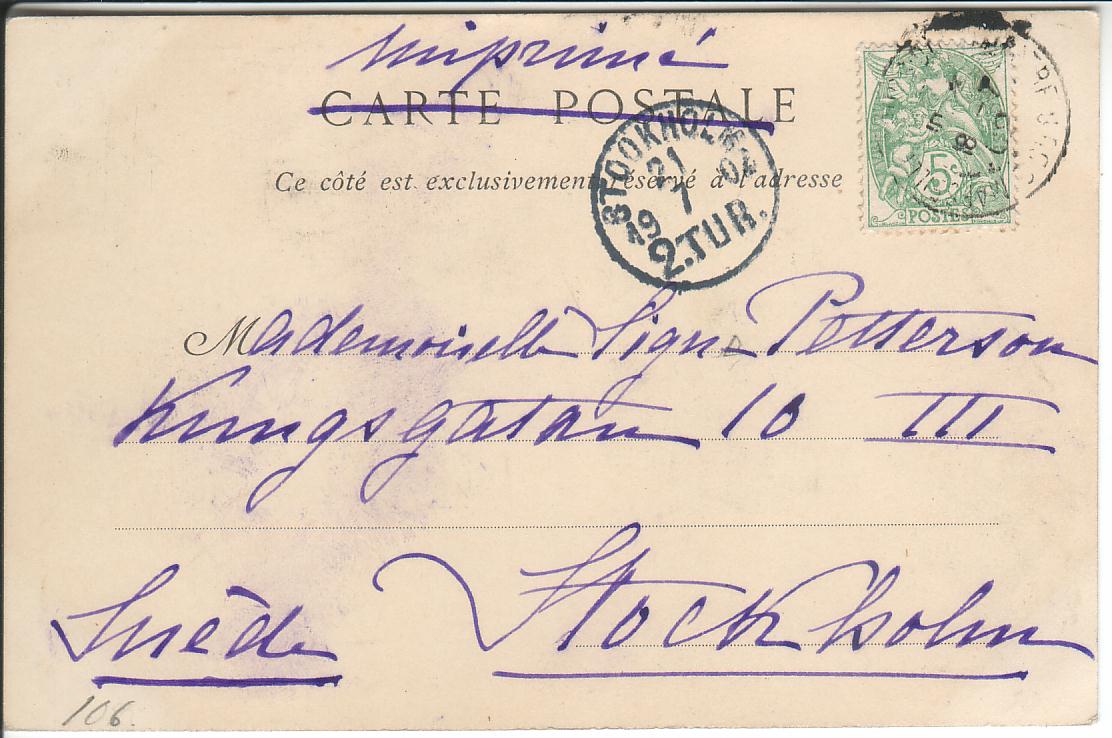 Imprimé
CARTE POSTALE
Ce côté est exclusivement réservé à l'adresse
STOCKHOLM
21 02
19 7
2.TUR.
5
POSTES
Mademoiselle Signe Petterson
Kungsgatan 10 III
Stockholm
Suède
106.